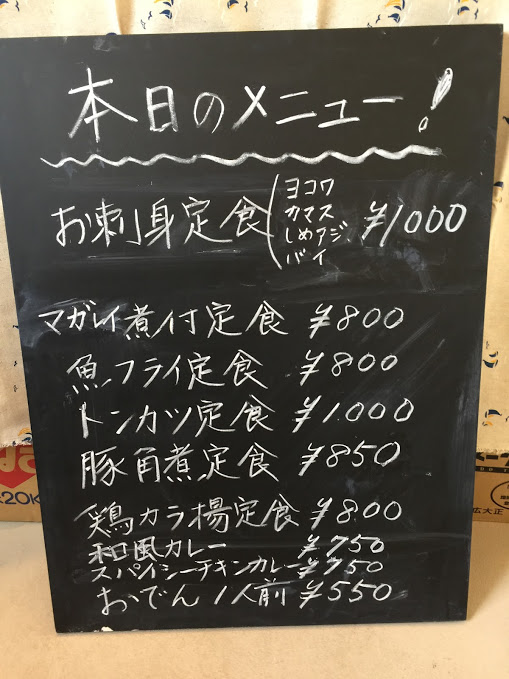 本日のメニュー!
お刺身定食(ヨコワ ¥1000
カマス
しめアジ
バイ
マガレイ煮付定食 ¥800
魚フライ定食 ¥800
トンカツ定食 ¥1000
豚角煮定食 ¥850
鶏カラ揚定食 ¥800
和風カレー ¥750
スパイシーチキンカレー ¥750
おでん1人前 ¥550
20K
広大正